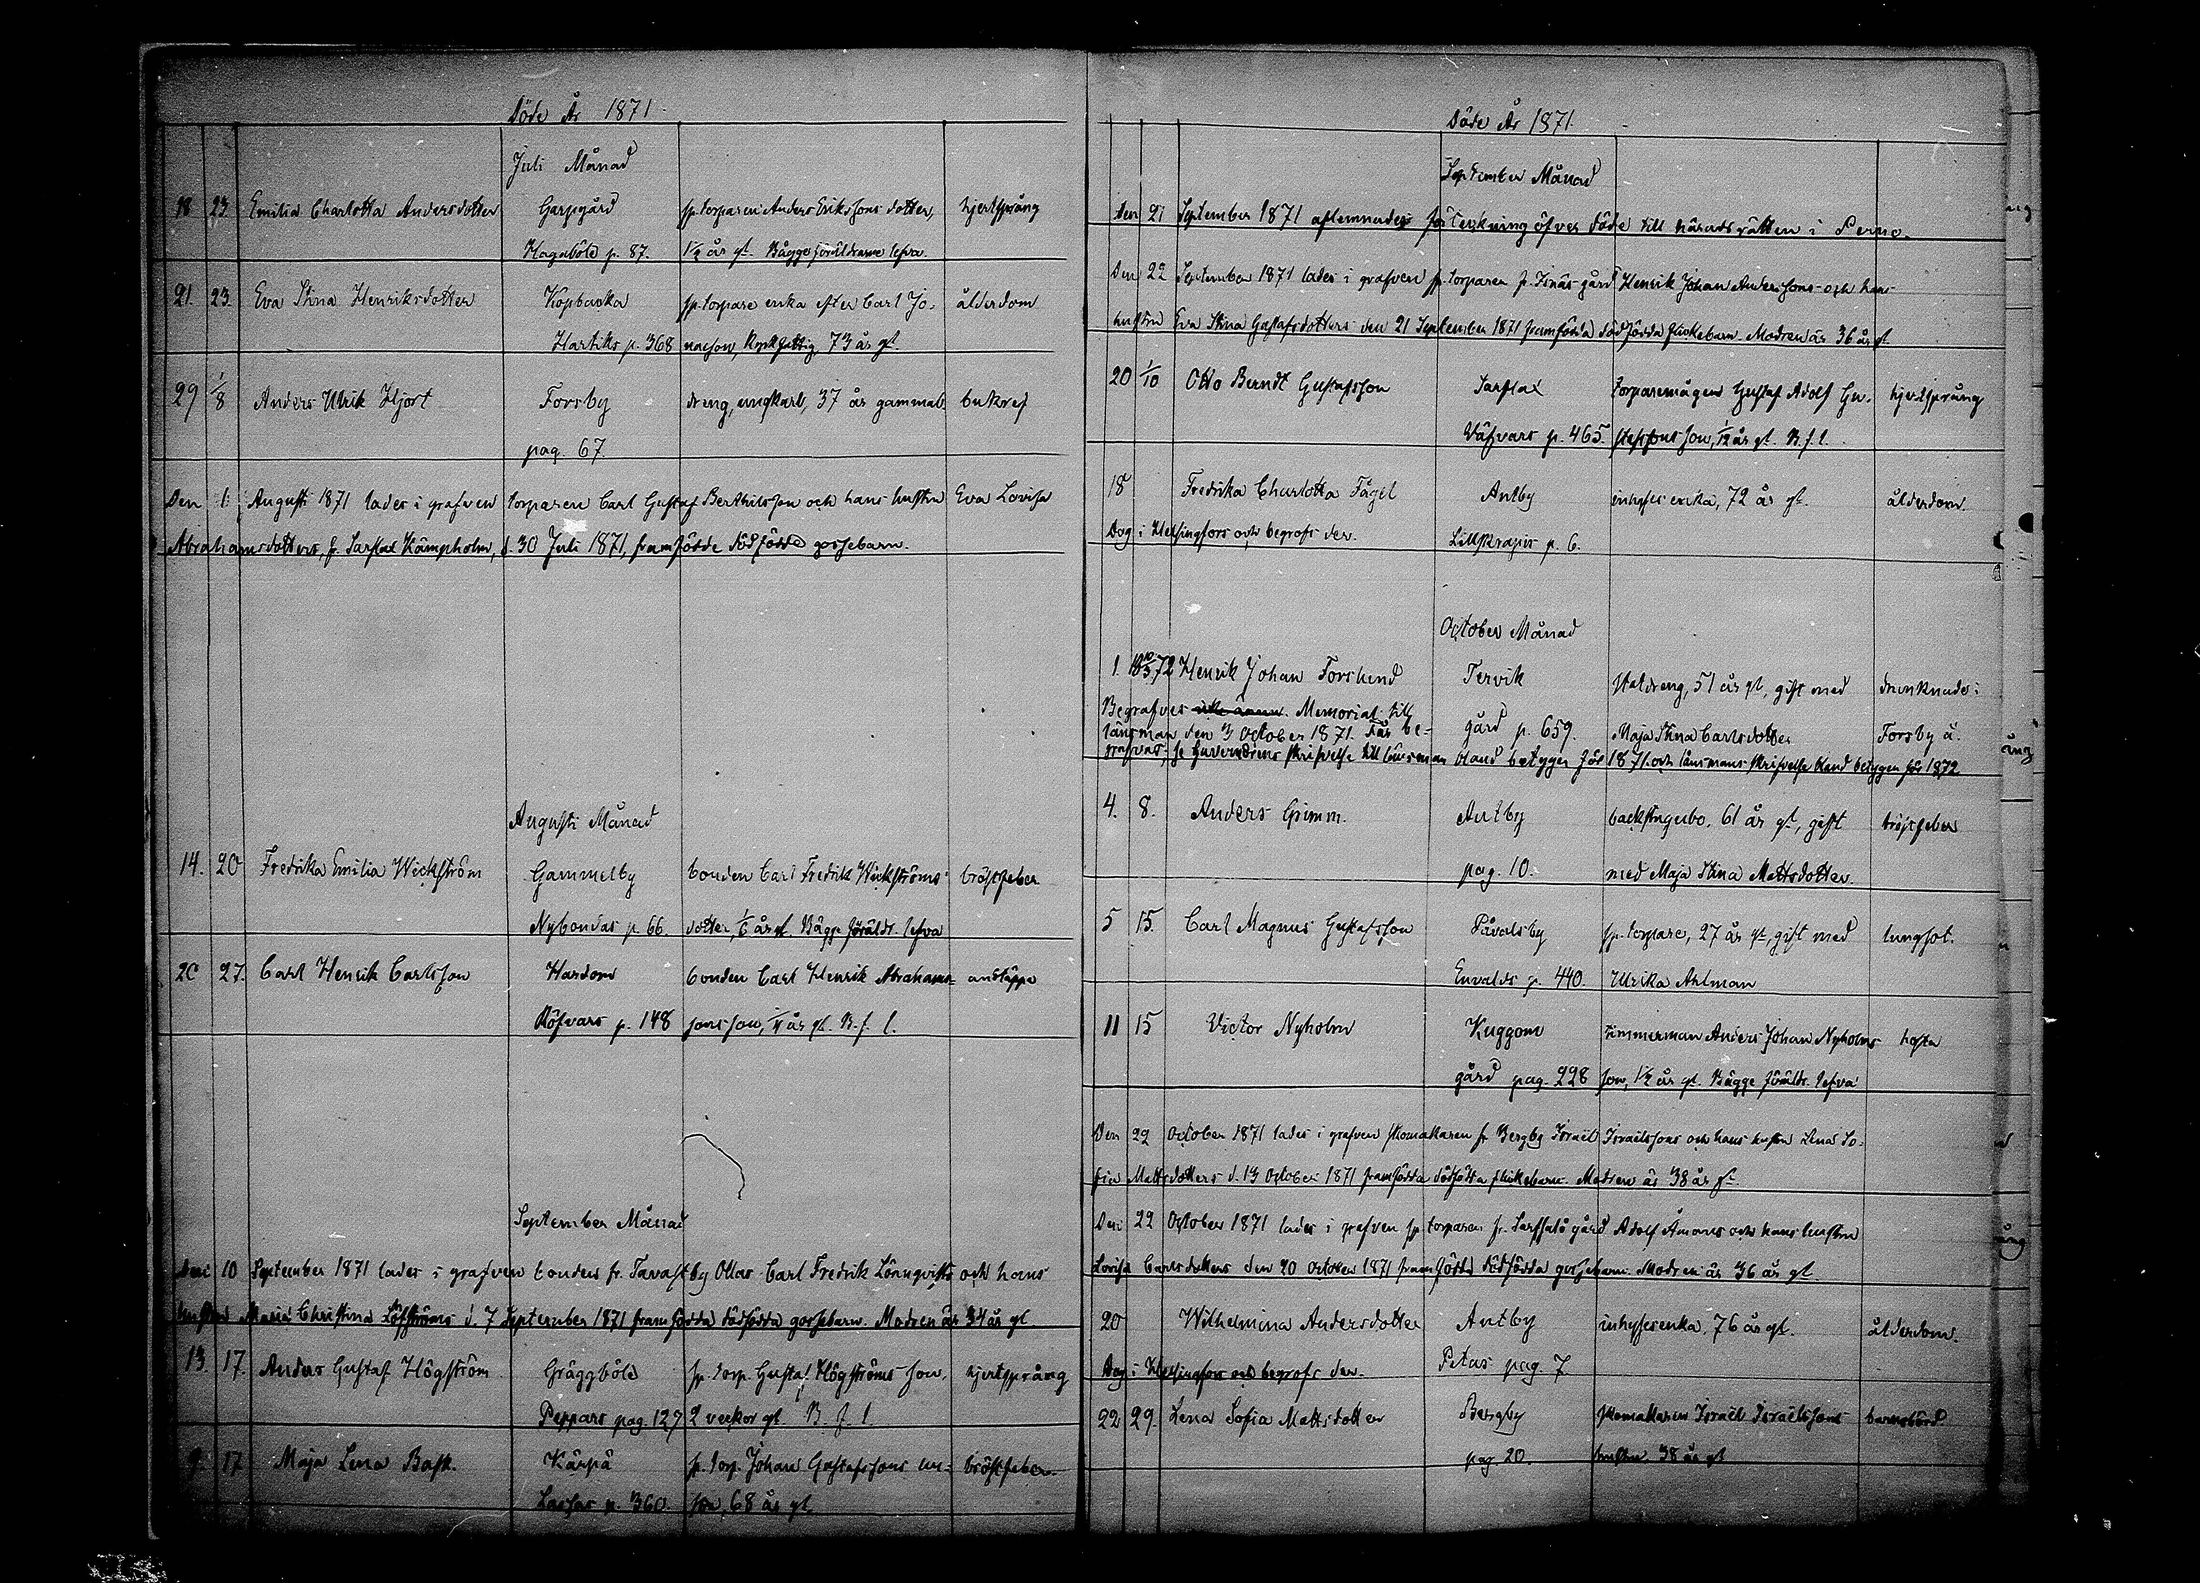 Döde År 1871
Juli Månad
18 23 Emilia Charlotta Andersdotter Garpgård sp. torparen Anders Erikssons dotter, hjertsprång
Hagaböle p. 87. 1 1/2 år gl. Bägge föräldrarne lefva.
21. 23. Eva Stina Henriksdotter Kopbacka sp. torpare enka efter Carl Jo- ålderdom
Hartiks p. 368 nasson, kyrkfattig 73 år gl.
29 1/8 Anders Ulrik Hjort Forsby dreng, ungkarl, 37 år gammal. bukref
pag. 67.
Den 1. Augusti 1871 lades i grafven torparen Carl Gustaf Berthilsson och hans hustru Eva Lovisa
Abrahamsdotters, fr. Sarflax Kämpholm, d. 30 Juli 1871, framfödde dödfödde gossebarn.
Augusti Månad
14. 20 Fredrika Emilia Wickström Gammelby bonden Carl Fredrik Wickströms bröstfeber
Nybondas p. 66 dotter, 1/6 år gl. Bägge föräldr. lefva
20 27. Carl Henrik Carlsson Hardom bonden Carl Henrik Abrahams- andtäppa
Röfvars p. 148 sons son, 1/4 år gl. B. f. l.
September Månad
Den 10 September 1871 lades i grafven bonden fr. Tavastby Ollas Carl Fredrik Lönnqvists och hans
hustru Maria Christina Löfströms d. 7 September 1871 framfödda dödfödda gossebarn. Modren är 34 år gl
13. 17. Anders Gustaf Högström Gräggböle sp. torp. Gustaf Högströms son, hjertsprång
Peppars pag. 127 2 veckor gl. B. f. l.
9. 17 Maja Lena Bask. Kärpä sp. torp. Johan Gustafssons hu- bröstfeber
Lassas p. 360 stru, 68 år gl.
Döde År 1871
September Månad
Den 21 September 1871 aflemnades förteckning öfver döde till häradsrätten i Perno.
Den 22 September 1871 lades i grafven sp. torparen fr. Isnäs gård Henrik Johan Anderssons och hans
hustru Eva Stina Gustafsdotters den 21 September 1871 framfödda dödfödda flickebarn. Modren är 36 år gl
20 1/10 Otto Berndt Gustafsson Sarflax torparemågen Gustaf Adolf Gu- hjertsprång
Väfvars p. 465. stafssons son, 1/12 år gl. B. f. l.
18 Fredrika Charlotta Fågel Antby inhyses enka, 72 år gl. ålderdom.
Dog i Helsingfors och begrofs der. Lillkrapis p. 6.
October Månad
1. 18 10/3 72 Henrik Johan Forslund Tervik Staldreng, 51 år gl, gift med drunknade i
Begrafves icke ännu. Memorial till
länsman den 3 October 1871. Får be- gård p. 659. Maja Stina Carlsdotter Forsby å.
grafvas, se Guvernörens skrifvelse till länsman bland betygen för 1871. och länsmans skrifvelse bland betygen för 1872
4. 8. Anders Grimm. Antby backstugubo. 61 år gl, gift bröstfeber
pag. 10. med Maja Stina Mattsdotter.
5 15. Carl Magnus Gustafsson Påvalsby sp. torpare, 27 år gl, gift med lungsot.
Envalds p. 440. Ulrika Ahlman
11 15 Victor Nyholm Kuggom timmerman Anders Johan Nyholms hosta
gård pag. 228 son, 1 1/2 år gl. Bägge föräldr. lefva
Den 22 October 1871 lades i grafven skomakaren fr. Bergby Israël Israëlssons och hans hustru Lena So-
fia Mattsdotters d. 13 October 1871 framfödda dödfödda flickebarn. Modren är 38 år gl
Den 22 October 1871 lades i grafven sp. torparen fr. Sarfsalö gård Adolf Åmans och hans hustru
Lovisa Carlsdotters den 20 October 1871 framfödda dödfödda gossebarn. Modren är 36 år gl
20 Wilhelmina Andersdotter Antby inhysesenka, 76 år gl. ålderdom.
Dog i Helsingfors och begrofs der. Petas pag. 7.
22 29. Lena Sofia Mattsdotter Bergby skomakaren Israël Israëlssons barnsbörd
pag. 20. hustru. 38 år gl